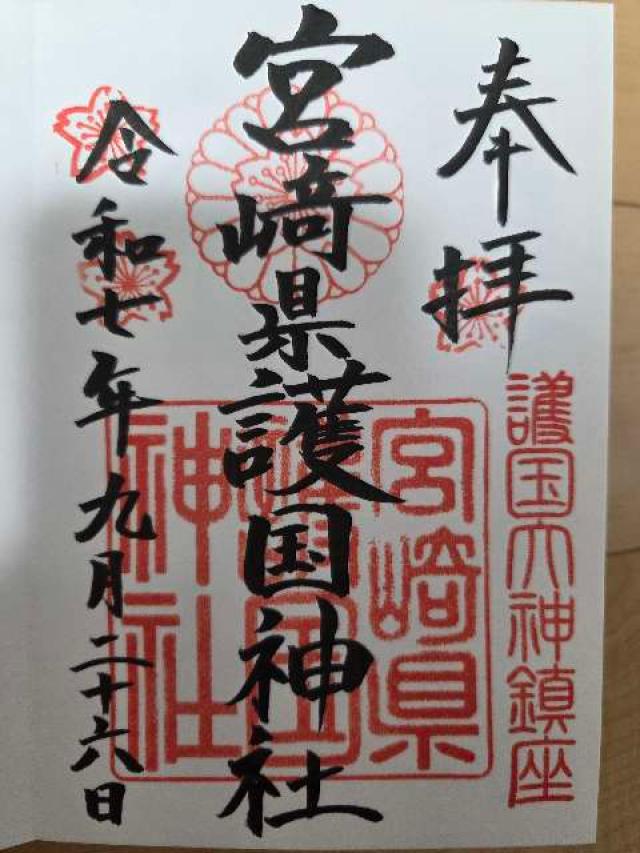 奉拝
護国大神鎮座
宮崎県護国神社
宮崎県
護国
神社
令和七年九月二十六日